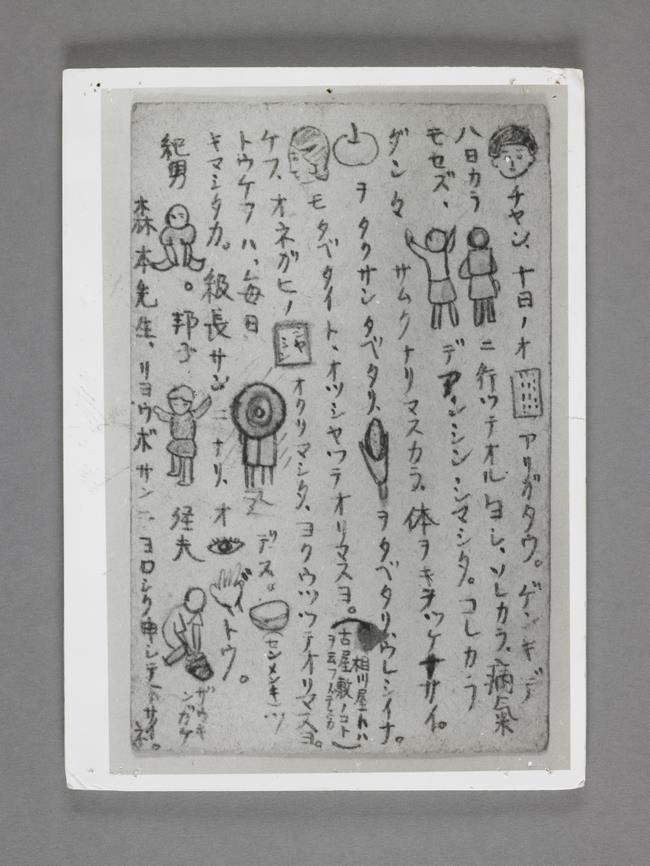 チヤン、十日ノオ アリガタウ。ゲンキデ
八日カラ ニ行ツテオルヨシ、ソレカラ、病氣
モセズ、 デアンシンシマシタ。コレカラ
ダンタ サムクナリマスカラ、体ヲキヲツケナサイ。
ヲタクサンタベタリ、 ヲタベタリ、ウレシイナ。
モタベタイト、オツシヤツテオリマスヨ。
相川屋トハ
古屋敷ノコト
ケフ、オネガヒノ シヤシン オクリマシタ、ヨクウツツテオリマスヨ。
トウケフハ、毎日 デス。 (センメンキ)ツ
キマシタカ。級長サンニナリ、オ デトウ。
紀男 。邦子 経夫 ザウキンガケ
森本先生、リヨウボサンニ、ヨロシク申シテ下サイネ。